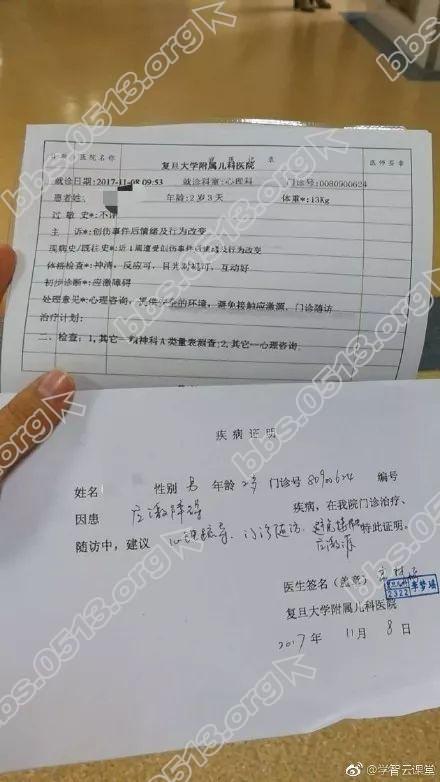 bbs.0513.org
日期 医院名称
医师签章
复旦大学附属儿科医院
就诊日期:2017-11-08 09:53 就诊科室:心理科 门诊号:0080900624
患者姓名: 年龄:2岁3天 体重*:13Kg
过 敏 史*:不详
主 诉*:创伤事件后情绪及行为改变
现病史/既往史*:近1周遭受创伤事件后情绪及行为改变
体格检查*:神清,反应可,目光对视可,互动好
初步诊断*:应激障碍
处理意见*:心理咨询,提供安全的环境,避免接触应激源,门诊随访
治疗计划:
二、检查:1,其它--精神科A类量表测查;2,其它--心理咨询
疾病证明
姓名 性别 男 年龄 2岁 门诊号 80900624 编号
因患 应激障碍 疾病,在我院门诊治疗、
随访中,建议 心理疏导、门诊随访、避免接触应激源 特此证明。
医生签名(盖章)
2322
复旦大学附属儿科医院
2017 年 11 月 8 日
@学智云课堂